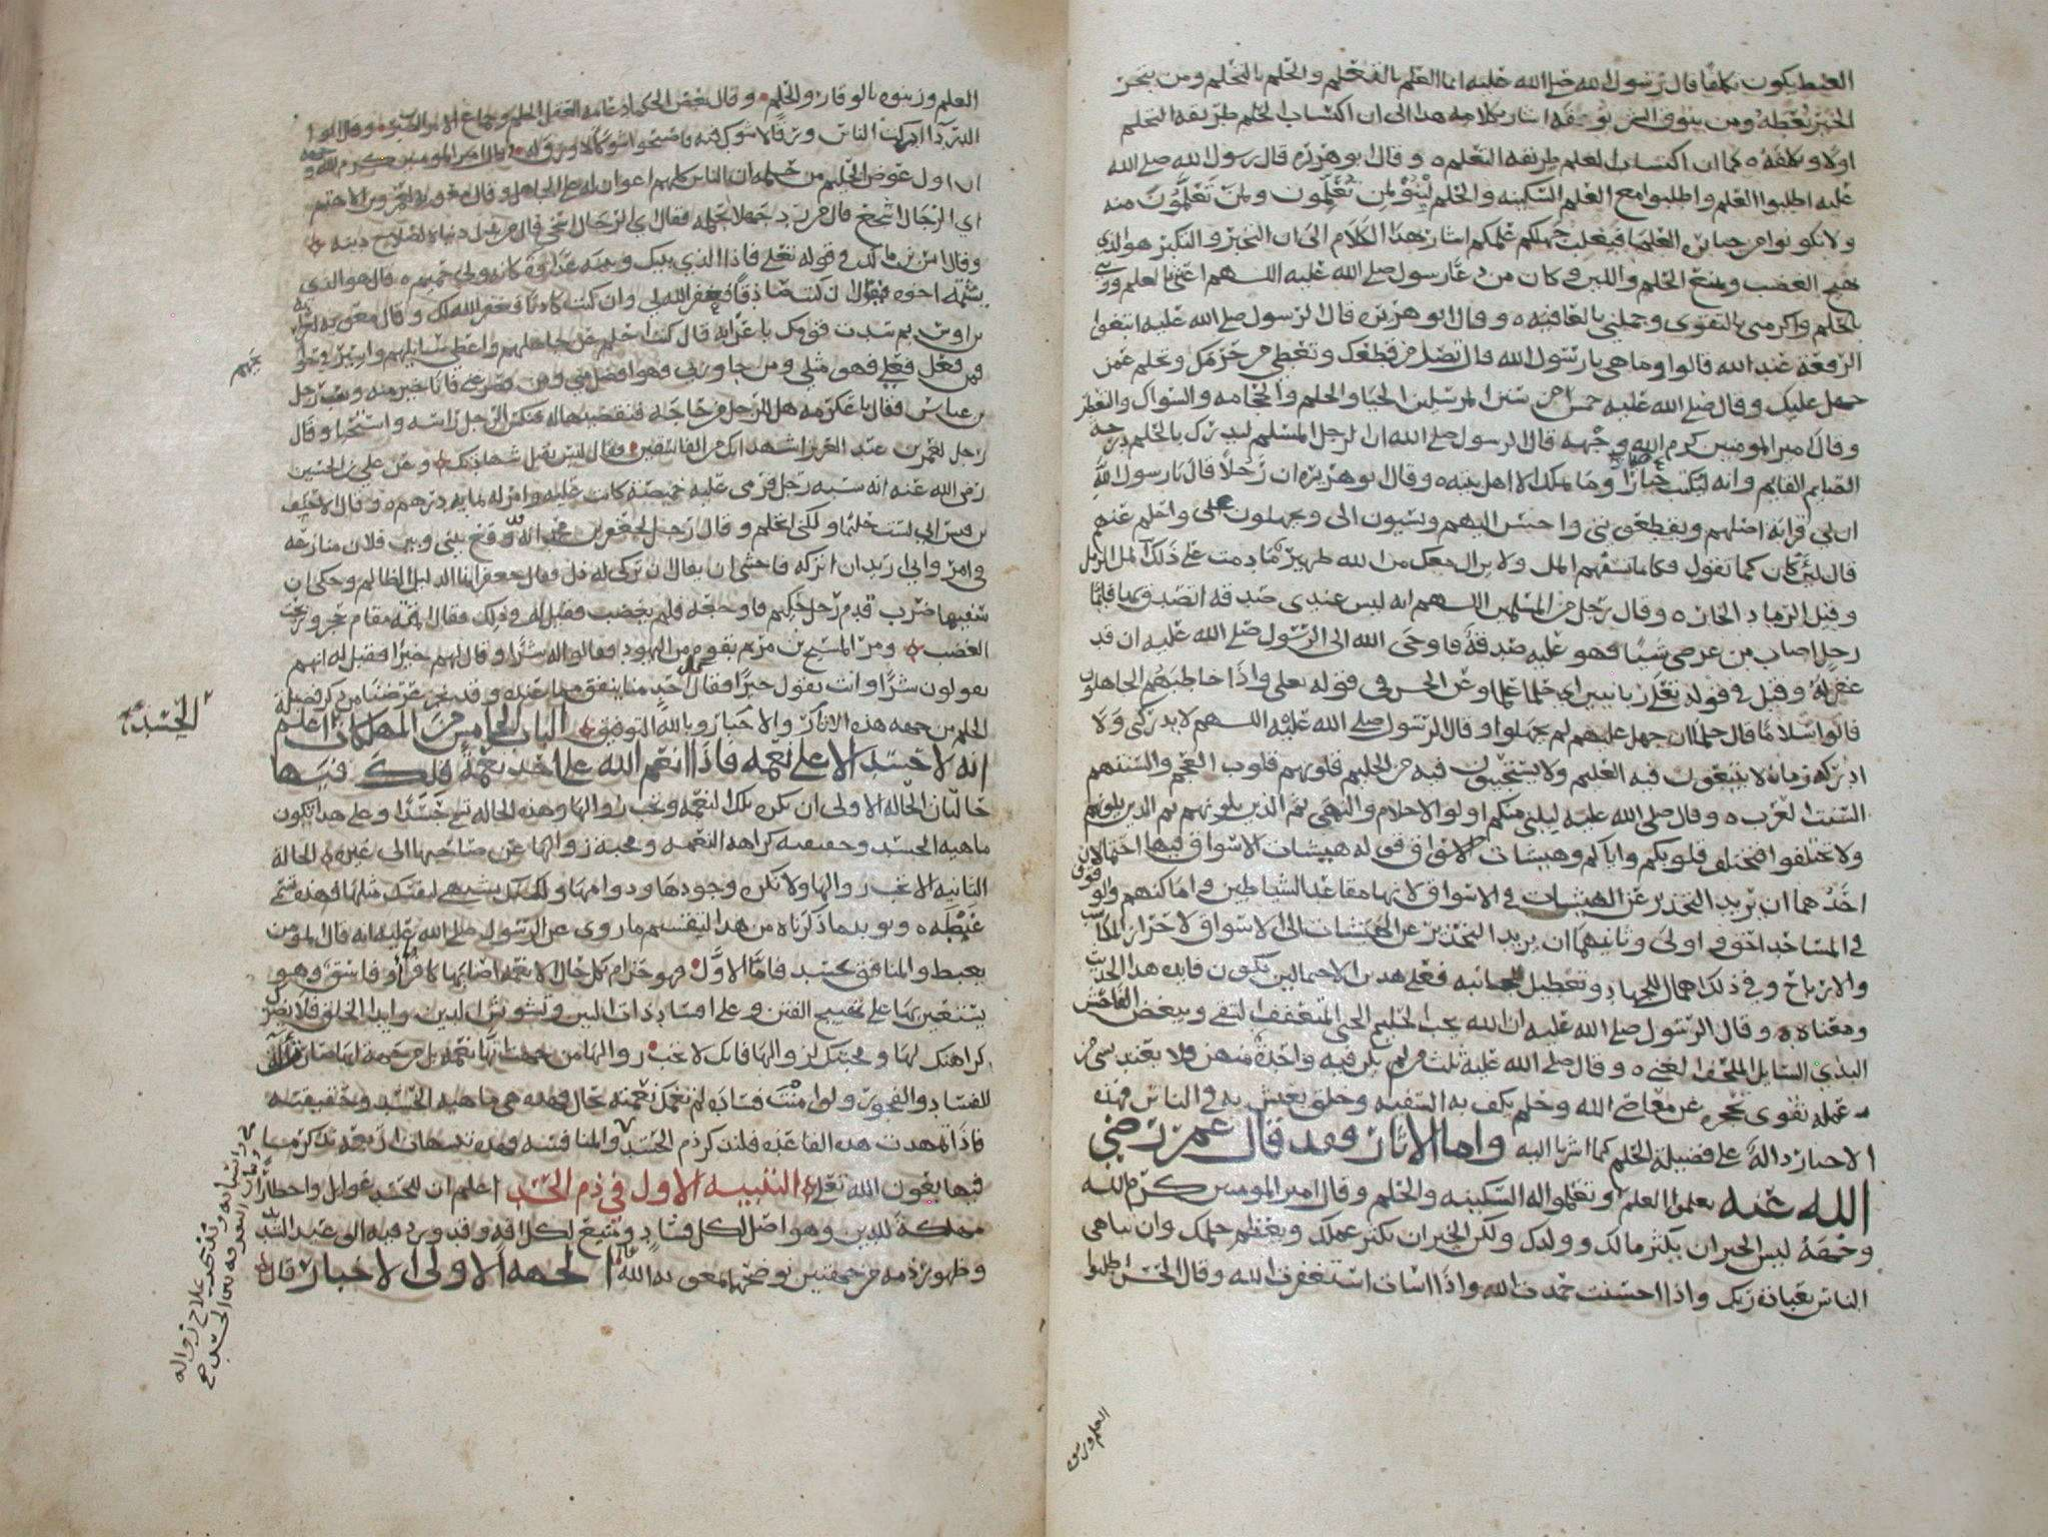 الغيظ يكون تكلفا قال رسول الله صلى الله عليه انما العلم بالتعلم والحلم بالتحلم ومن يتخير
الخير يعطه ومن يتوق الشر يوقه اشار بكلامه هذا الى ان اكتساب الحلم طريقه التحلم
اولا وتكلفه كما ان اكتساب العلم طريقه التعلم وقال ابو هريره قال رسول الله صلى الله
عليه اطلبوا العلم واطلبوا مع العلم السكينه والحلم لينوا لمن تعلمون ولمن تعلمون منه
ولا تكونوا من جبابرة العلما فيغلب جهلكم علمكم اشار بهذا الكلام الى ان التجبر والتكبر هو الذي
يهيج الغضب ويمنع الحلم واللين وكان من دعا رسول صلى الله عليه اللهم اغنني بالعلم وزيني
بالحلم واكرمني بالتقوى وجملني بالعافيه وقال ابو هريره قال الرسول صلى الله عليه ابتغوا
الرفعة عند الله قالوا وما هي يا رسول الله قال تصل من قطعك وتعطي من حرمك وتحلم عمن
جهل عليك وقال صلى الله عليه خمس من سنن المرسلين الحيا والحلم والحجامه والسواك والتعطر
وقال امير المومنين كرم الله وجهه قال الرسول صلى الله ان الرجل المسلم ليدرك بالحلم درجه
الصايم القايم وانه ليكتب جبارا وما يملك الا اهل بيته وقال ابو هريره ان رجلا قال يا رسول الله
ان لي قرابة اصلهم ويقطعوني واحسن اليهم ويسيون الي ويجهلون علي واحلم عنهم
قال لين كان كما تقول فكانما تسفهم المل ولا يزال معك من الله ظهير ما دمت على ذلك المل الرمل
وقيل الرماد الحار وقال رجل من المسلمين اللهم انه ليس عندي صدقه اتصدق بها فايما
رجل اصاب من عرضي شيا فهو عليه صدقة فاوحى الله الى الرسول صلى الله عليه ان قد
غفر له وقيل في قوله تعلى ربانيين اي حلما علما وعن الحسن في قوله تعلى واذا خاطبهم الجاهلون
قالوا سلاما قال حلما ان جهل عليهم لم يجهلوا وقال الرسول صلى الله عليه اللهم لا يدركني ولا
ادركه زمان لا يتبعون فيه العليم ولا يستحيون فيه من الحليم قلوبهم قلوب العجم والسنتهم
السنت العرب وقال صلى الله عليه ليليني منكم اولوا الاحلام والنهى ثم الذين يلونهم ثم الذين يلونهم
ولا تختلفوا فتختلف قلوبكم واياكم وهيشات الاسواق قوله هيشات الاسواق فيها احتمالان
احدهما ان يريد التحذير عن الهيشات في الاسواق لانها مقاعد الشياطين في اماكنهم والوقوف
في المساجد احق واولى وثانيهما ان يريد التحذير عن الهيشات الى الاسواق لاحراز المكاسب
والارباح وفي ذلك اهمال للجهاد وتعطيل لجانبه فعلى هذين الاحتمالين يكون فايده هذا الحديث
ومعناه وقال الرسول صلى الله عليه ان الله يحب الحليم الحيي المتعفف التقي ويبغض الفاحش
البذي السايل الملحف الغني وقال صلى الله عليه ثلث من لم يكن فيه واحدة منهن فلا يعتد بشي من
عمله تقوى تحجره عن معاصي الله وحلم يكف به السفيه وخلق يعيش به في الناس فهذه
الاخبار دالة على فضيلة الحلم كما اشرنا اليه واما الاثار فقد قال عمر رضي
الله عنه تعلموا العلم وتعلموا له السكينه والحلم وقال امير المومنين كرم الله
وجهه ليس الخير ان يكثر مالك وولدك ولكن الخير ان يكثر عملك ويعظم حلمك وان تباهي
الناس بعبادة ربك واذا احسنت حمدت الله واذا اسات استغفرت الله وقال الحسن اطلبوا
العلم وزينوه
العلم وزينوه بالوقار والحلم وقال بعض الحكما دعامه العقل الحلم وجماع الامر الصبر وقال ابو
الدردا ادركت الناس ورقا لا شوك فيه فاصبحوا شوكا لا ورق له وقال امير المومنين كرم الله وجهه
ان اول عوض الحليم من حلمه ان الناس كلهم اعوان له على الجاهل وقال معويه لعمرو بن الاهتم
اي الرجال اشجع قال من رد جهله بحلمه فقال اي الرجال اسخى قال من بذل دنياه لصلاح دينه
وقال انس بن مالك في قوله تعلى فاذا الذي بينك وبينه عداوة كانه ولي حميم قال هو الذي
يشتمه اخوه فيقول ان كنت صادقا فغفر الله لي وان كنت كاذبا فغفر الله لك وقال معويه لعرابه
بن اوس بم سدت قومك يا عرابه قال كنت احلم عن جاهلهم واعطي سايلهم واسير في حوا
يجهم
فمن فعل فعلي فهو مثلي ومن جاوزني فهو افضل مني ومن قصر عني فانا خير منه وسب رجل
بن عباس فقال يا عكرمه هل للرجل من حاجه فنقضيها له فنكس الرجل راسه واستحيا وقال
رجل لعمر بن عبد العزيز اشهد انك من الفاسقين فقال ليس تقبل شهادتك وعن علي بن الحسين
رضي الله عنه انه سبه رجل فرمى عليه خميصة كانت عليه وامر له بمايه درهم وقال الاحنف
بن قيس اني لست حليما ولكني اتحلم وقال رجل لجعفر بن محمد انه قد وقع بيني وبين فلان منازعه
في امر واني اريد ان اتركه فاخشى ان يقال ان تركي له ذل فقال جعفر انما الذليل الظالم وحكي ان
سفيها ضرب قدم رجل حكيم فاوجعه فلم يغضب فقيل له في ذلك فقال اقمته مقام حجر
الغضب ومر المسيح بن مريم بقوم من اليهود فقالوا له شرا وقال لهم خيرا فقيل له انهم
يقولون شرا وانت تقول خيرا فقال كل احد منا ينفق مما عنده وقد نجز غرضنا من ذكر فضيلة
الحلم من جهه هذه الاثار والاخبار وبالله التوفيق الباب الخامس من المهلكات اعلم
الحسد
انه لا حسد الا على نعمه فاذا انعم الله على احد نعمة فلك فيها
حالتان الحاله الاولى ان تكره تلك النعمه وتحب زوالها وهذه الحاله تسمى حسدا وعلى هذا تكون
ماهيه الحسد وحقيقته كراهه النعمه ومحبة زوالها عن صاحبها الى غيره الحالة
الثانيه الا تحب زوالها ولا تكره وجودها ودوامها ولكنك تشتهي لنفسك مثلها فهذه تسمى
غبطه ويويد ما ذكرناه من هذا التقسيم ما روي عن الرسول صلى الله عليه انه قال المومن
يغبط والمنافق يحسد فاما الاول فهو حرام بكل حال الا نعمة اصابها كافر او فاسق وهو
يستعين بها على تهييج الفتن وعلى افساد ذات البين وتشويش الدين وايذا الخلق فلا يضرك
كراهتك لها ومحبتك لزوالها فانك لا تحب زوالها من حيث انها نعمه بل من جهة انها صارت آله
للفساد والفجور ولو امنت فساده لم تغمك نعمته بحال فهذه هي ماهيه الحسد وحقيقته
فاذا تمهدت هذه القاعده فلنذكر ذم الحسد والمنافسه وهذه تنبيهات اربعه نذكر ما
فيها بعون الله تعلى التنبيه الاول في ذم الحسد اعلم ان للحسد غوايل واخطار
مهلكة للدين وهو اصل لكل فساد ومنبع لكل افه وقد ورد فيه
وظهور ذمه من جهتين نوضحهما بمعونه الله الجهه الاولى الاخبار قال